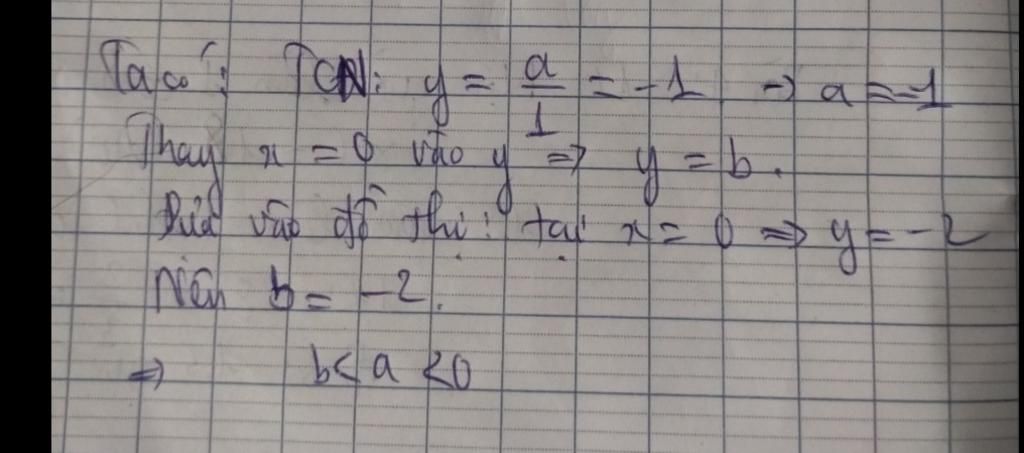 Ta có: TCN: y = a/1 = -1 → a = -1
Thay x = 0 vào y => y = b.
Dựa vào đồ thị: tại x = 0 => y = -2
Nên b = -2.
=> b < a < 0